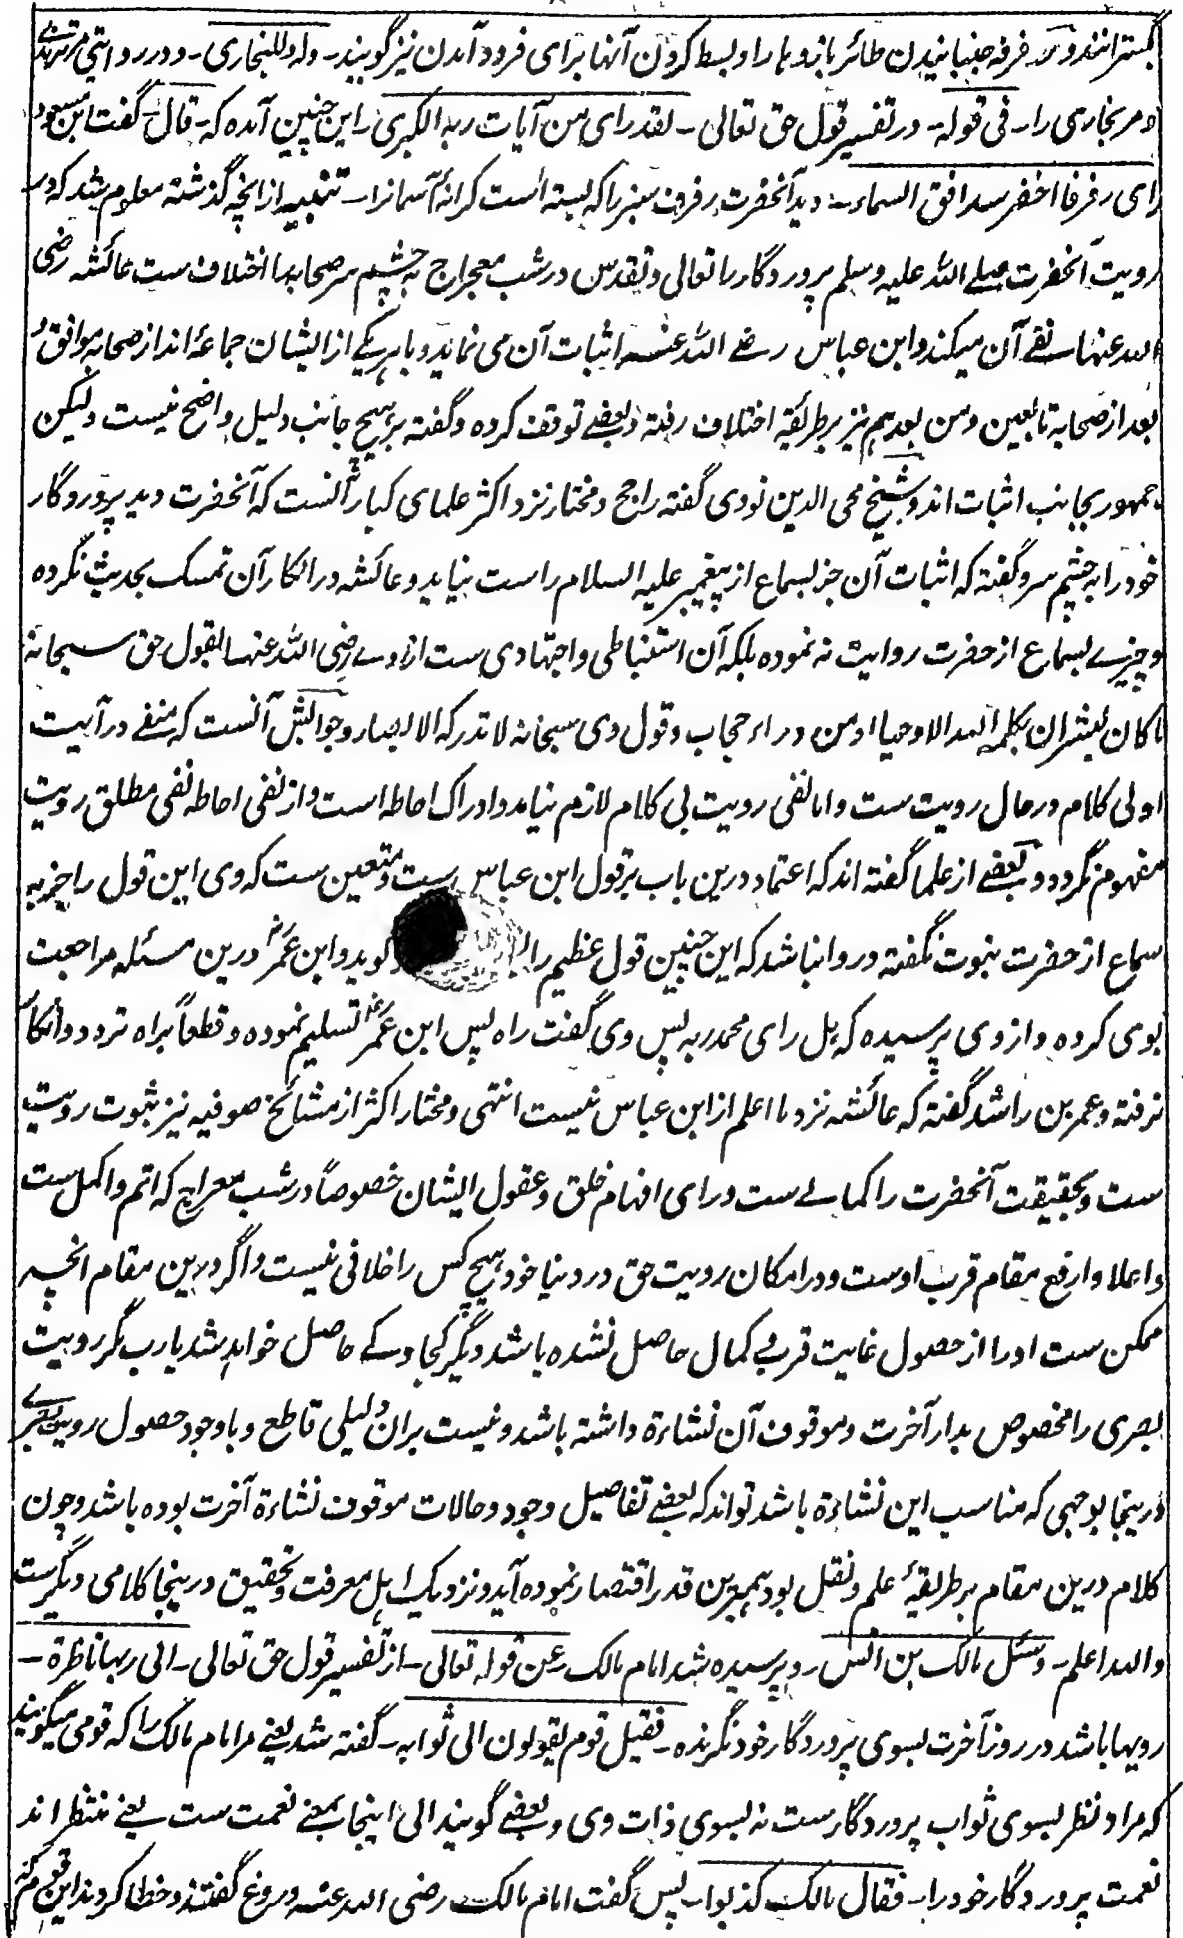 بگسترانند و رفرفه جنبانیدن طائر بازوها را و بسط کردن آنها برای فرود آمدن نیز گویند۔ وله وللبخاری۔ و در روایتی مر ترمذی
و مر بخاری را۔ فی قوله۔ در تفسیر قول حق تعالی۔ لقد رای من آیات ربه الکبری۔ این چنین آمده که۔ قال۔ گفت ابن مسعود
رای رفرفا اخضر سد افق السماء۔ دید آنحضرت رفرف سبز را که بسته است کرانۀ آسمانرا۔ تنبیه ازانچه گذشته معلوم شد که در
رویت آنحضرت صلے الله علیه وسلم پروردگار را تعالی و تقدس در شب معراج به چشم سر صحابه را اختلاف ست عائشه رضی
الله عنها نفے آن میکند و ابن عباس رضے الله عنه اثبات آن می نماید و با هر یکے از ایشان جماعۀ اند از صحابه موافق و
بعد از صحابه تابعین و من بعدهم نیز بر طریقۀ اختلاف رفته و بعضے توقف کرده و گفته بر هیچ جانب دلیل واضح نیست ولیکن
جمهور بجانب اثبات اند و شیخ محی الدین نووی گفته راجح و مختار نزد اکثر علمای کبار آنست که آنحضرت دید پروردگار
خود را به چشم سر و گفته که اثبات آن جز بسماع از پیغمبر علیه السلام راست نیاید و عائشه در انکار آن تمسک بحدیث نکرده
و چیزے بسماع از حضرت روایت نه نموده بلکه آن استنباطی و اجتهادی ست از وے رضی الله عنها بقول حق سبحانه
ما کان لبشر ان یکلمه الله الا وحیا او من وراء حجاب و قول وی سبحانه لا تدرکه الابصار و جوابش آنست که منفے در آیت
اولی کلام در حال رویت ست و اما نفی رویت بی کلام لازم نیاید و ادراک احاطه است و از نفی احاطه نفی مطلق رویت
مفهوم نگردد و بعضے از علما گفته اند که اعتماد درین باب بر قول ابن عباس ست و متعین ست که وی این قول را جز به
سماع از حضرت نبوت نگفته و روا نباشد که این چنین قول عظیم را گوید و ابن عمر درین مسئله مراجعت
بوی کرده و از وی پرسیده که هل رای محمد ربه پس وی گفت راه پس ابن عمر تسلیم نموده و قطعاً براه تردد و انکار
نرفته و عمر بن راشد گفته که عائشه نزد ما اعلم از ابن عباس نیست انتهی و مختار اکثر از مشائخ صوفیه نیز ثبوت رویت
ست و بحقیقت آنحضرت را کمالے ست ورای افهام خلق و عقول ایشان خصوصاً در شب معراج که اتم و اکمل ست
و اعلا و ارفع مقام قرب اوست و در امکان رویت حق در دنیا خود هیچ کس را خلافی نیست و اگر درین مقام انچه
ممکن ست او را از حصول غایت قرب و کمال حاصل نشده باشد دیگر کجا و کے حاصل خواهد شد یا رب مگر رویت
بصری را مخصوص بدار آخرت و موقوف آن نشاءة داشته باشد و نیست بران دلیلی قاطع و با وجود حصول رویت بصرے
درینجا بوجهی که مناسب این نشاءة باشد تواند که بعضے تفاصیل وجود و حالات موقوف نشاءة آخرت بوده باشد و چون
کلام درین مقام بر طریقۀ علم و نقل بود همبرین قدر اقتصار نموده آید و نزدیک اهل معرفت و تحقیق درینجا کلامی دیگرست
والله اعلم۔ وسئل مالک بن انس۔ و پرسیده شد امام مالک۔ عن قوله تعالی۔ از تفسیر قول حق تعالی۔ الی ربها ناظرة۔
رویها باشد در روز آخرت بسوی پروردگار خود نگرنده۔ فقیل قوم یقولون الی ثوابه۔ گفته شد یعنے مر امام مالک را که قومی میگویند
که مراد نظر بسوی ثواب پروردگار ست نه بسوی ذات وی و بعضے گویند الی اینجا بمعنے نعمت ست یعنے منتظر اند
نعمت پروردگار خود را۔ فقال مالک کذبوا۔ پس گفت امام مالک رضی الله عنه دروغ گفتند و خطا کردند این قوم که